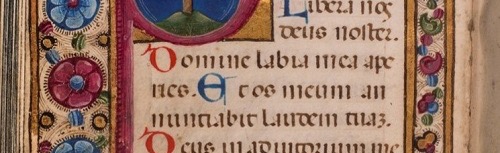 Libera nos
deus noster.
Domine labia mea ape
ries. Et os meum an
nuntiabit laudem tuaz.
Deus in adiutorium me